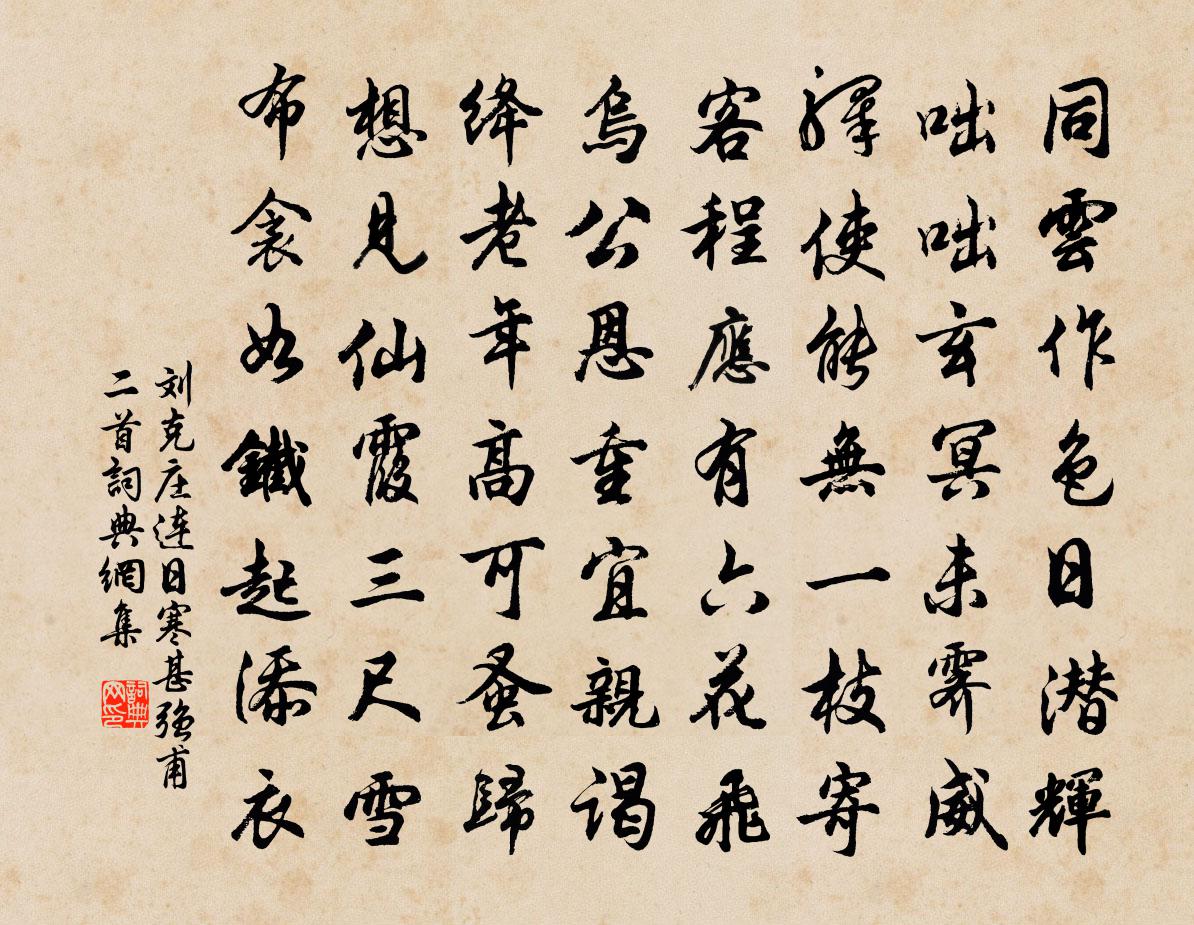 同雲作色日潜輝
咄咄玄冥未霽威
驛使能無一枝寄
客程應有六花飛
烏公恩重宜親谒
绛老年高可蚤歸
想見仙霞三尺雪
布衾如鐵起添衣
刘克庄连日寒甚强甫
二首詞典網集
詞典
网印